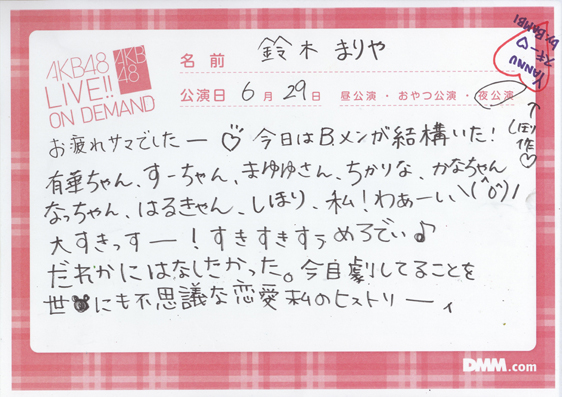 AKB48
LIVE!!
ON DEMAND
AKB
48
名前 鈴木まりや
公演日 6月29日 昼公演・おやつ公演・夜公演
YANNU
スギー♡
by.BAMBI
↑
しほり作♡
お疲れサマでしたー♡今日はB.メンが結構いた!
有華ちゃん、すーちゃん、まゆゆさん、ちかりな、かなちゃん
なっちゃん、はるきゃん、しほり、私!わぁーい\(^o^)/
大すきっすー!すきすきすぅめろでぃ♪
だれかにはなしたかった。今自劇してることを
世にも不思議な恋愛私のヒストリーィ
DMM.com